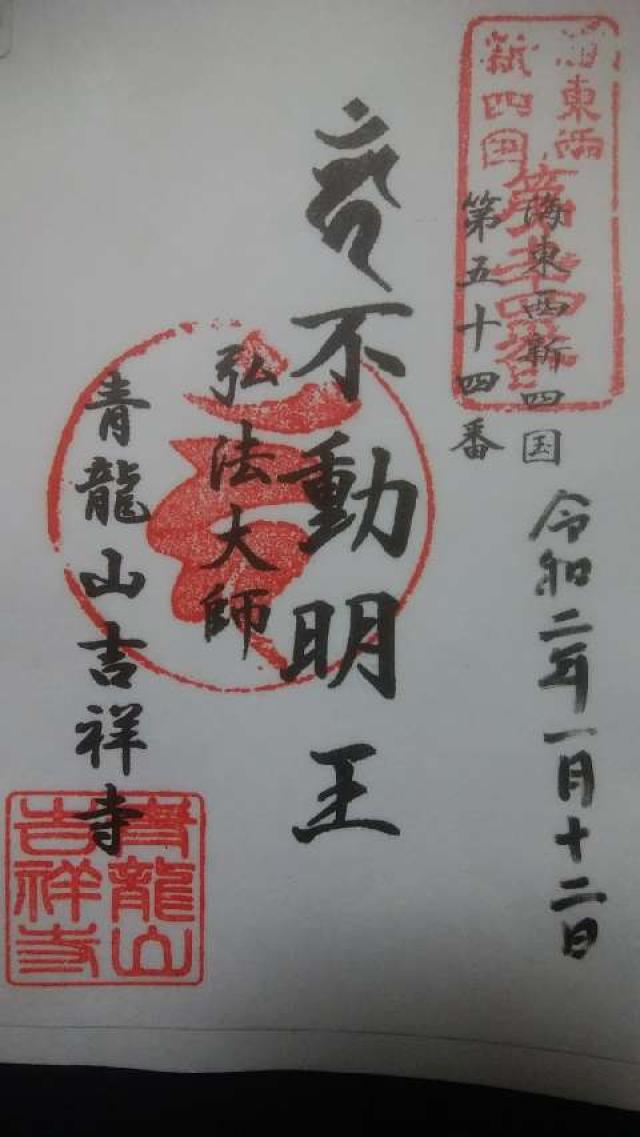 海東西新四国
第五十四番
令和二年一月十二日
海東西新四国
第五十四番
不動明王
弘法大師
青龍山吉祥寺
青龍山吉祥寺